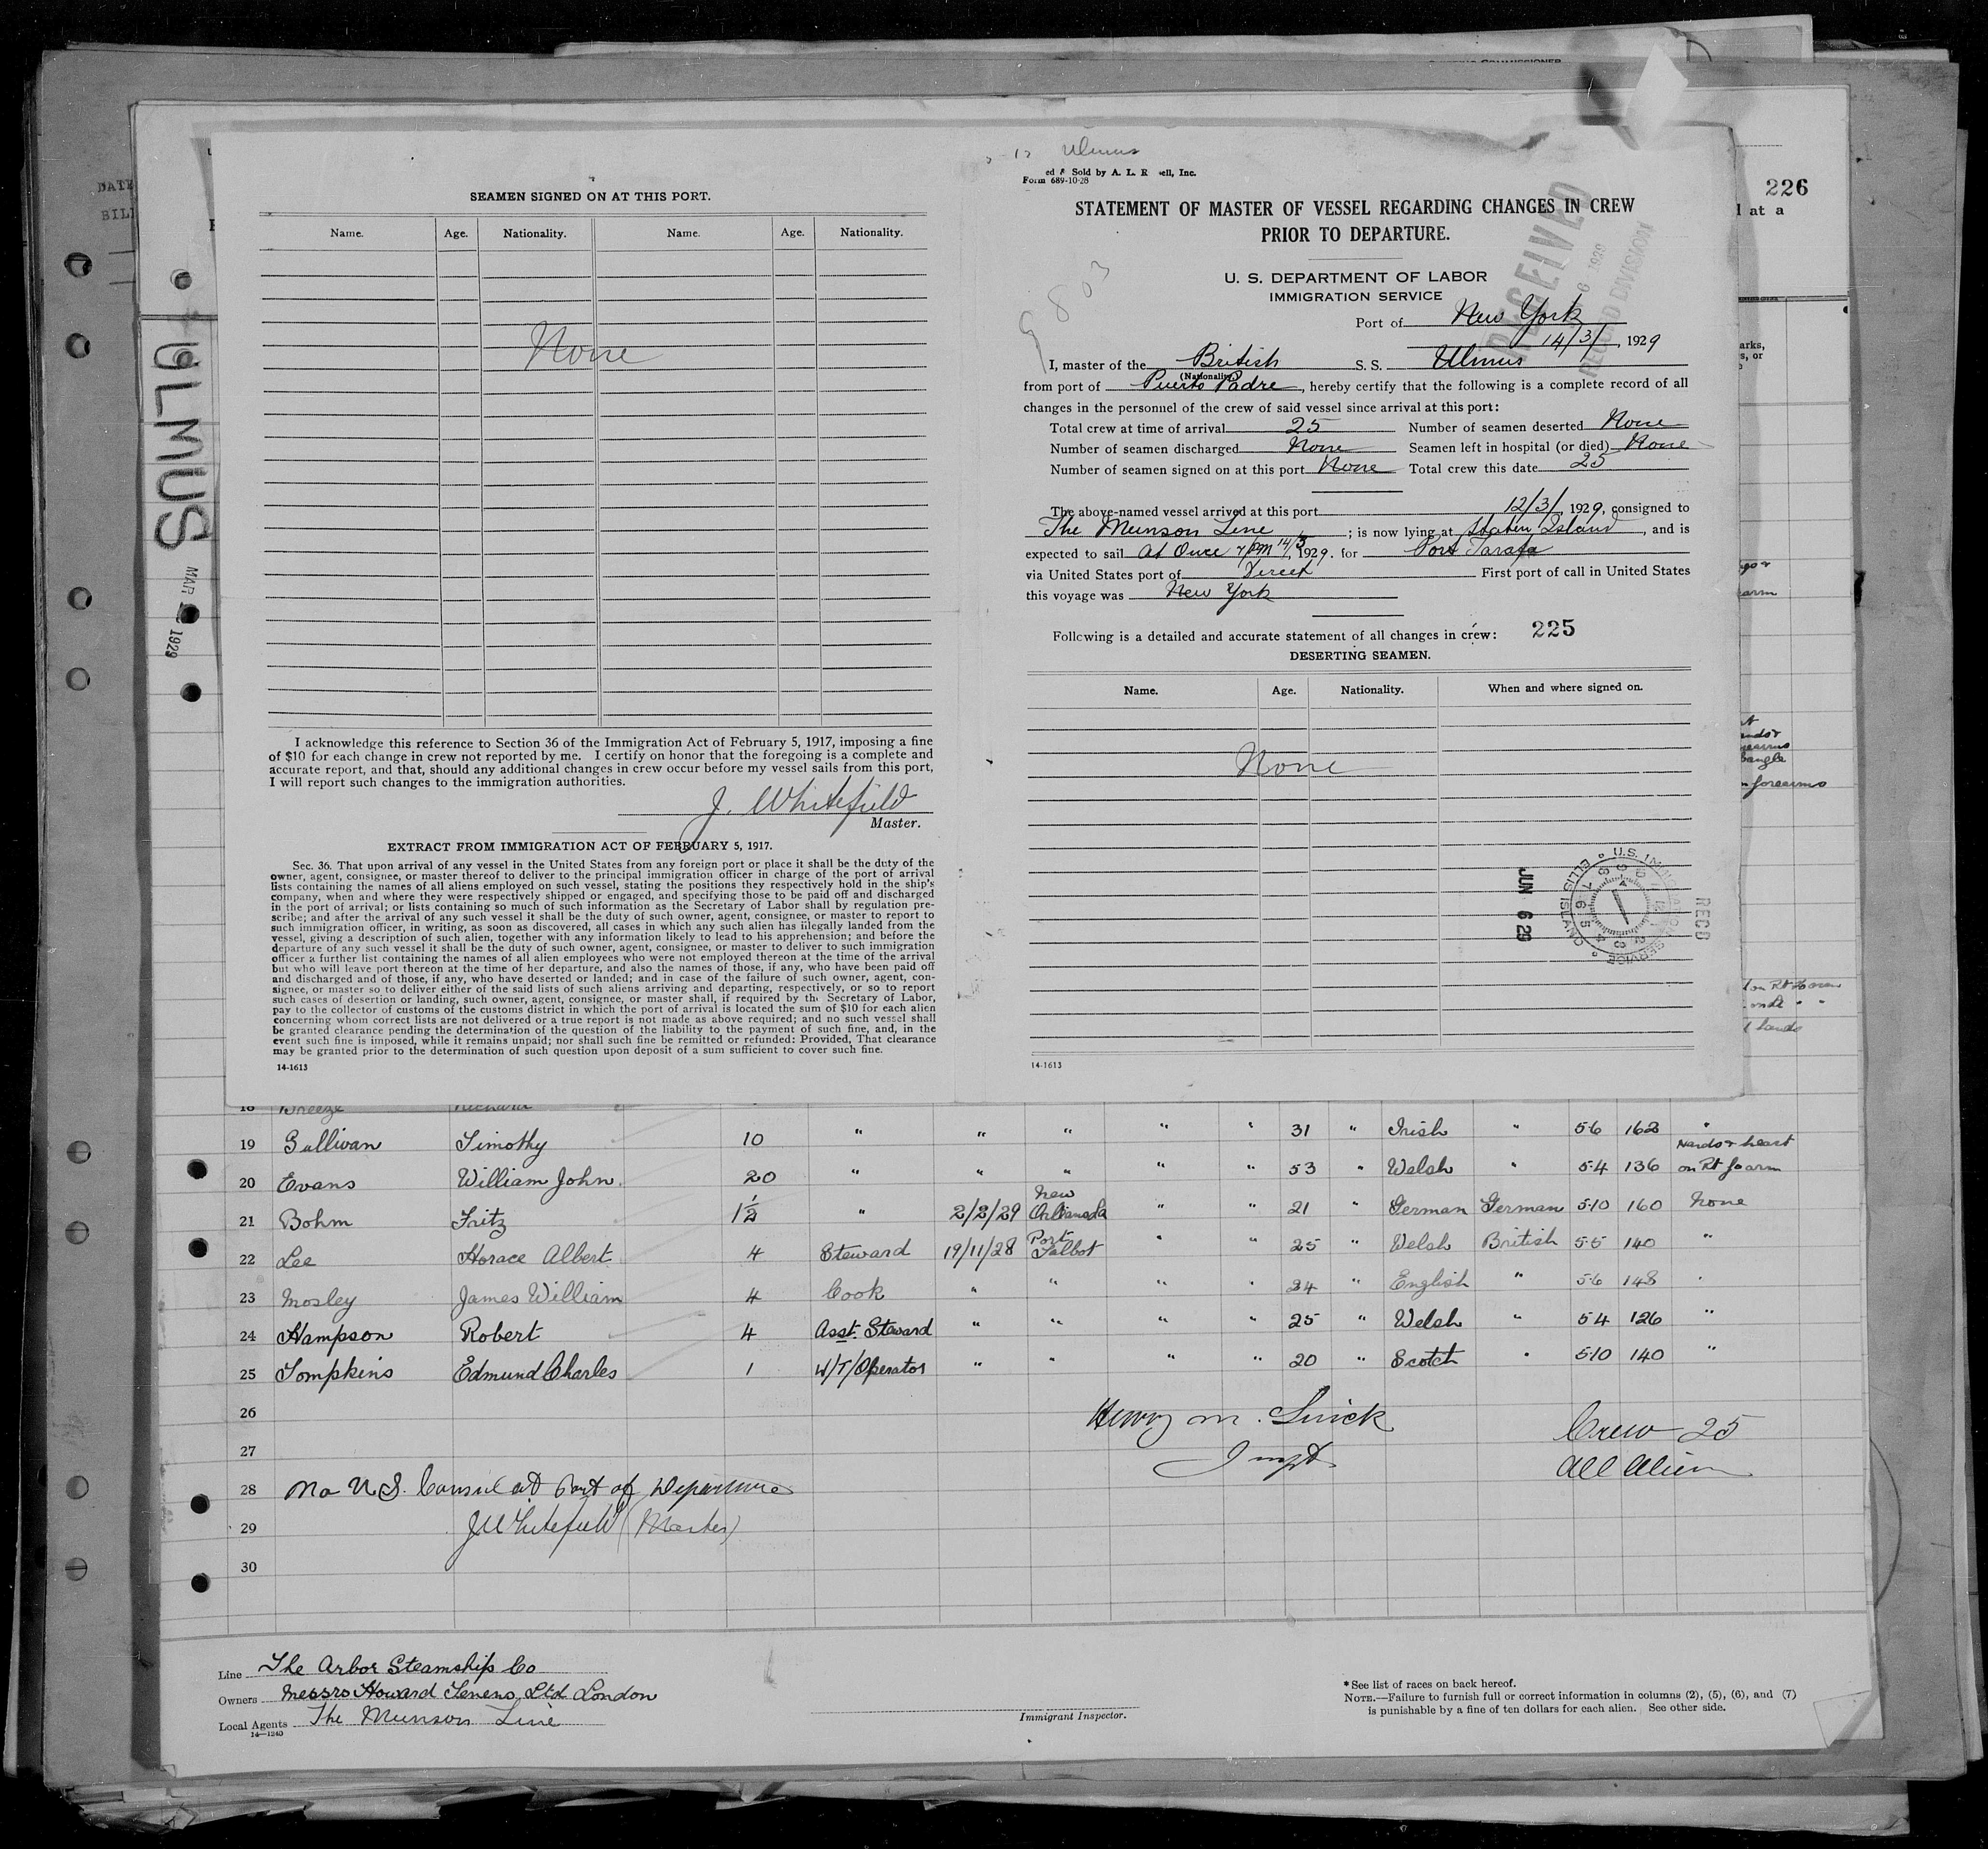 SEAMEN SIGNED ON AT THIS PORT.
Name. Age. Nationality. Name. Age. Nationality.
None
I acknowledge this reference to Section 36 of the Immigration Act of February 5, 1917, imposing a fine
of $10 for each change in crew not reported by me. I certify on honor that the foregoing is a complete and
accurate report, and that, should any additional changes in crew occur before my vessel sails from this port,
I will report such changes to the immigration authorities.
J. Whitefield
Master.
EXTRACT FROM IMMIGRATION ACT OF FEBRUARY 5, 1917.
Sec. 36. That upon arrival of any vessel in the United States from any foreign port or place it shall be the duty of the
owner, agent, consignee, or master thereof to deliver to the principal immigration officer in charge of the port of arrival
lists containing the names of all aliens employed on such vessel, stating the positions they respectively hold in the ship's
company, when and where they were respectively shipped or engaged, and specifying those to be paid off and discharged
in the port of arrival; or lists containing so much of such information as the Secretary of Labor shall by regulation pre-
scribe; and after the arrival of any such vessel it shall be the duty of such owner, agent, consignee, or master to report to
such immigration officer, in writing, as soon as discovered, all cases in which any such alien has illegally landed from the
vessel, giving a description of such alien, together with any information likely to lead to his apprehension; and before the
departure of any such vessel it shall be the duty of such owner, agent, consignee, or master to deliver to such immigration
officer a further list containing the names of all alien employees who were not employed thereon at the time of the arrival
but who will leave port thereon at the time of her departure, and also the names of those, if any, who have been paid off
and discharged and of those, if any, who have deserted or landed; and in case of the failure of such owner, agent, con-
signee, or master so to deliver either of the said lists of such aliens arriving and departing, respectively, or so to report
such cases of desertion or landing, such owner, agent, consignee, or master shall, if required by the Secretary of Labor,
pay to the collector of customs of the customs district in which the port of arrival is located the sum of $10 for each alien
concerning whom correct lists are not delivered or a true report is not made as above required; and no such vessel shall
be granted clearance pending the determination of the question of the liability to the payment of such fine, and, in the
event such fine is imposed, while it remains unpaid; nor shall such fine be remitted or refunded: Provided, That clearance
may be granted prior to the determination of such question upon deposit of a sum sufficient to cover such fine.
14-1613
Ulmus
Sold by A. L. Inc.
Form 689-10-28
STATEMENT OF MASTER OF VESSEL REGARDING CHANGES IN CREW
PRIOR TO DEPARTURE.
9803
U. S. DEPARTMENT OF LABOR
IMMIGRATION SERVICE
RECEIVED
6 1929
RECORD DIVISION
Port of New York
14/3/, 1929
I, master of the British S. S. Ulmus
(Nationality)
from port of Puerto Padre, hereby certify that the following is a complete record of all
changes in the personnel of the crew of said vessel since arrival at this port:
Total crew at time of arrival 25 Number of seamen deserted None
Number of seamen discharged None Seamen left in hospital (or died) None
Number of seamen signed on at this port None Total crew this date 25
The above-named vessel arrived at this port 12/3/, 1929, consigned to
The Munson Line; is now lying at Staten Island, and is
expected to sail At Once 7 pm 14/3, 1929. for Port Tarafa
via United States port of Direct First port of call in United States
this voyage was New York
Following is a detailed and accurate statement of all changes in crew: 225
DESERTING SEAMEN.
Name. Age. Nationality. When and where signed on.
None
JUN 6 29
U.S. IMMIGRATION SERVICE
ELLIS ISLAND
RECD
14-1613
226
at a
ULMUS
MAR 1929
forearms
hands
18 Breeze Richard
19 Sullivan Timothy 10 " " " " " 31 " Irish " 5-6 162 "
20 Evans William John. 20 " " " " " 53 " Welsh " 5-4 136 Hands & heart on Rt foarm
21 Bohm Fritz 1½ " 2/2/29 New Orleans La " " 21 " German German 5-10 160 None
22 Lee Horace Albert 4 Steward 19/11/28 Port Talbot " " 25 " Welsh British 5-5 140 "
23 Mosley James William 4 Cook " " " " 24 " English " 5-6 148 "
24 Hampson Robert 4 Asst. Steward " " " " 25 " Welsh " 5-4 126 "
25 Tompkins Edmund Charles 1 W/T/Operator " " " " 20 " Scotch " 5-10 140 "
26
27
28 No U.S. Consul at Port of Departure
29 J Whitefield (Master)
30
Crew 25
All Alien
Line The Arbor Steamship Co
Owners Messrs Howard Tenens Ltd London
Local Agents The Munson Line
14—1240
Immigrant Inspector.
* See list of races on back hereof.
NOTE.—Failure to furnish full or correct information in columns (2), (5), (6), and (7)
is punishable by a fine of ten dollars for each alien. See other side.